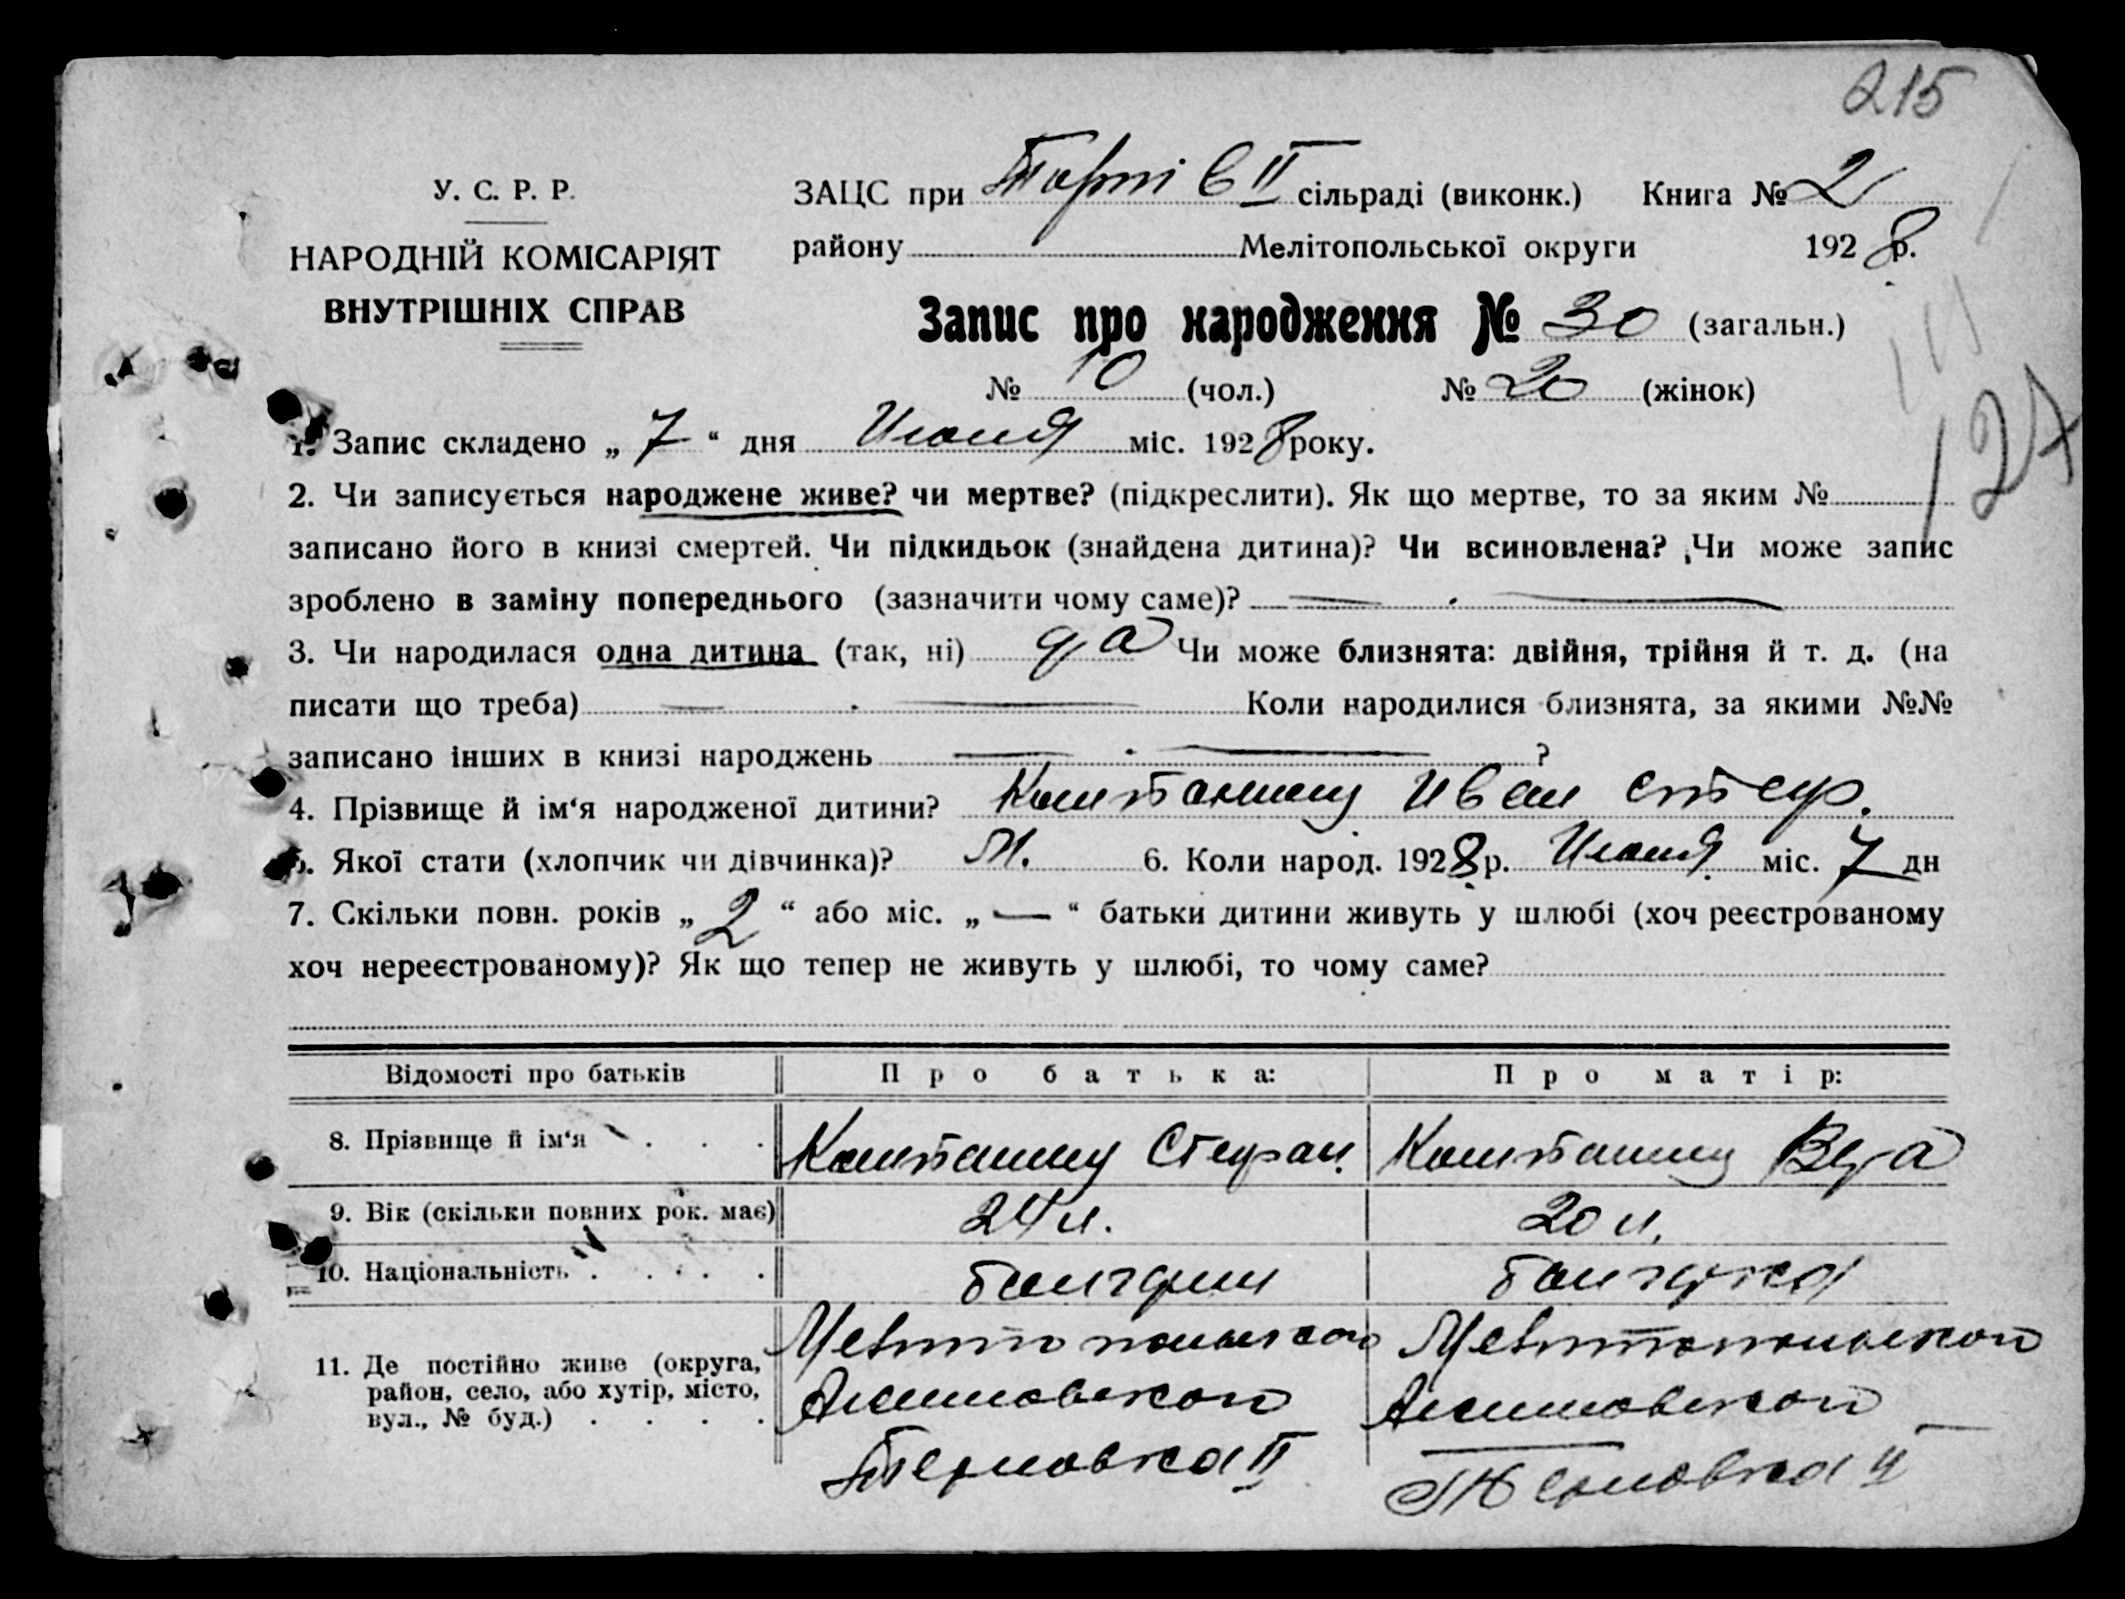 215
У. С. Р. Р.
НАРОДНІЙ КОМІСАРІЯТ
ВНУТРІШНІХ СПРАВ
ЗАЦС при II сільраді (виконк.) Книга № 2
району Мелітопольської округи 1928 р.
Запис про народження № 30 (загальн.)
№ 10 (чол.) № 20 (жінок)
127
1. Запис складено „ 7 “ дня Июня міс. 1928 року.
2. Чи записується народжене живе? чи мертве? (підкреслити). Як що мертве, то за яким №
записано його в книзі смертей. Чи підкидьок (знайдена дитина)? Чи всиновлена? Чи може запис
зроблено в заміну попереднього (зазначити чому саме)? —
3. Чи народилася одна дитина (так, ні) да Чи може близнята: двійня, трійня й т. д. (на
писати що треба) — Коли народилися близнята, за якими №№
записано інших в книзі народжень — ?
4. Прізвище й ім‘я народженої дитини? Иван Стеф.
5. Якої стати (хлопчик чи дівчинка)? М. 6. Коли народ. 1928 р. Июня міс. 7 дн
7. Скільки повн. років „ 2 “ або міс. „ — “ батьки дитини живуть у шлюбі (хоч реєстрованому
хоч нереєстрованому)? Як що тепер не живуть у шлюбі, то чому саме?
Відомості про батьків Про батька: Про матір:
8. Прізвище й ім‘я . . . Стефан Вера
9. Вік (скільки повних рок. має) 24 л. 20 л.
10. Національність . . . . болгарин болгарка
11. Де постійно живе (округа,
район, село, або хутір, місто,
вул., № буд.) . . . .
Мелитопольского Мелитопольского
Акимовского Акимовского
Терновка II Терновка II